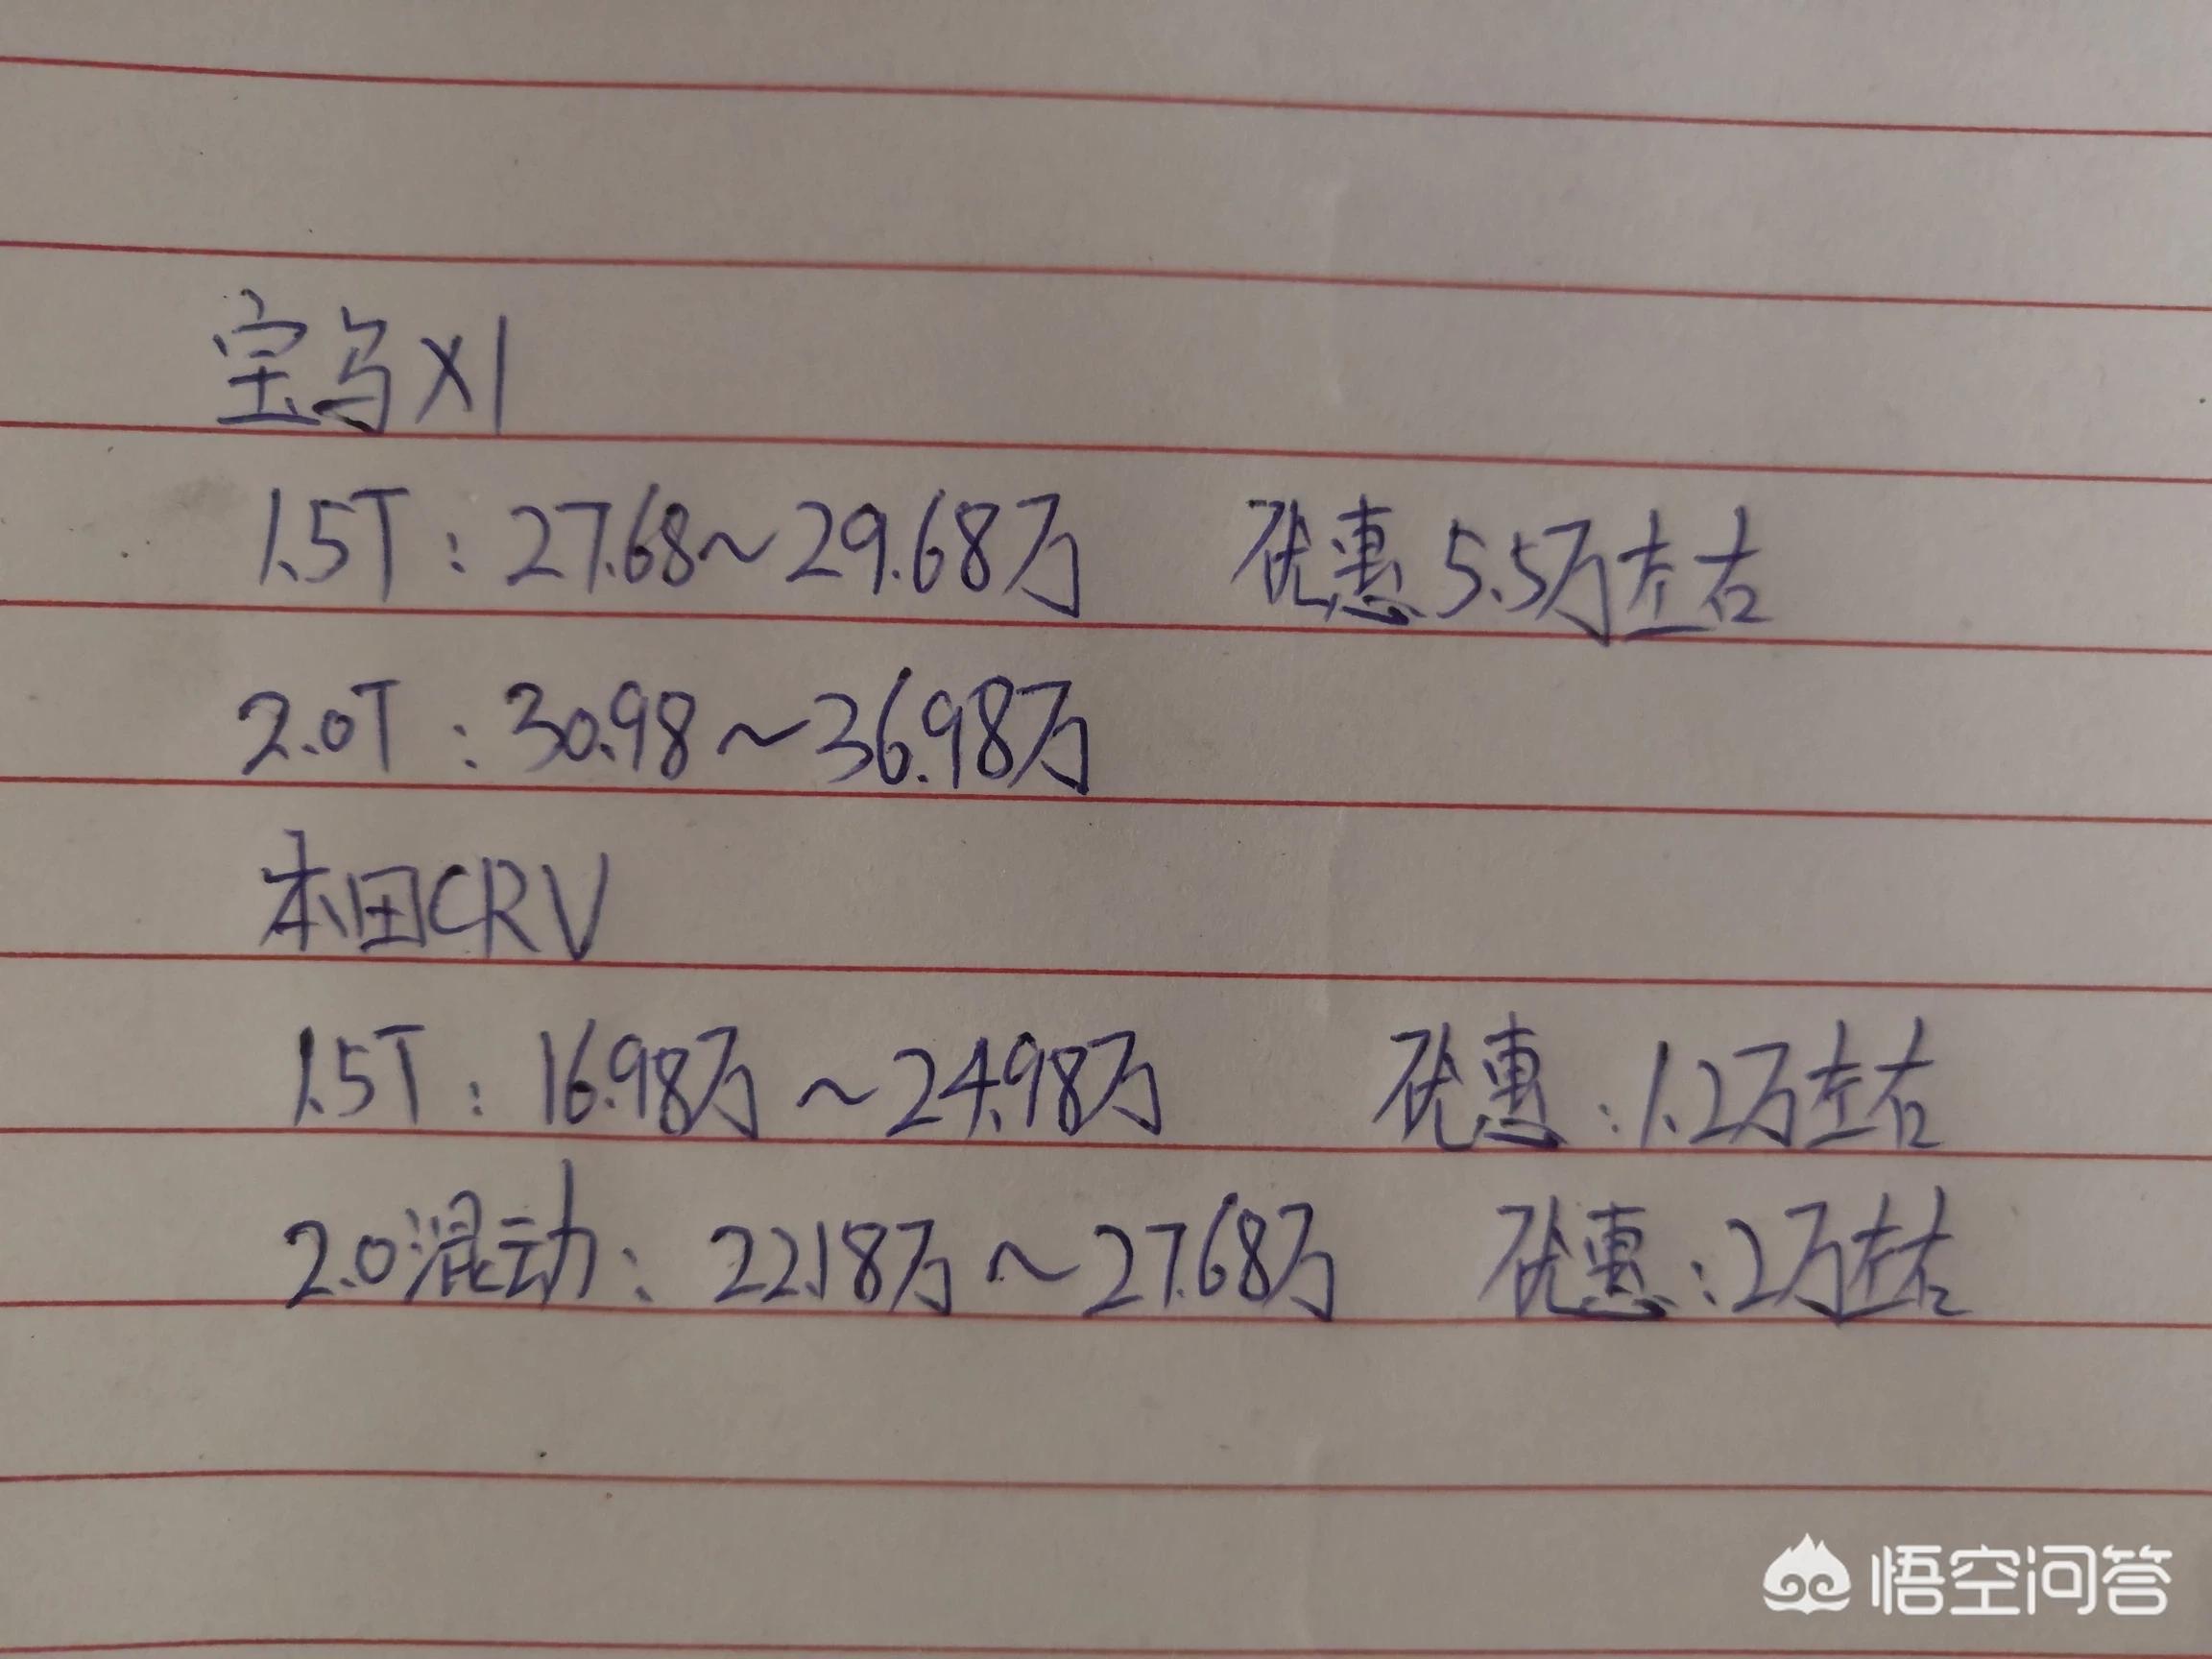 宝马X1
1.5T：27.68~29.68万 优惠5.5万左右
2.0T：30.98~36.98万
本田CRV
1.5T：16.98万~24.98万 优惠：1.2万左右
2.0混动：22.18万~27.68万 优惠：2万左右
悟空问答